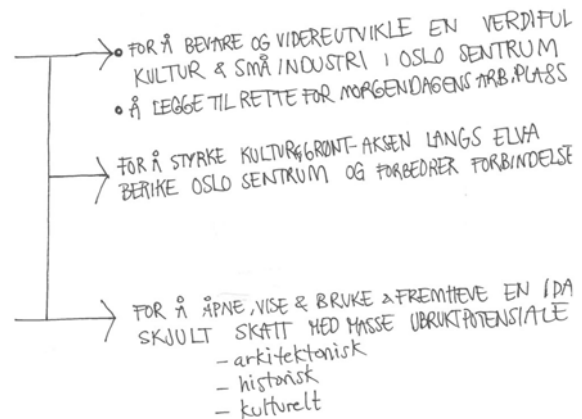 • FOR Å BEVARE OG VIDEREUTVIKLE EN VERDIFUL
KULTUR & SMÅINDUSTRI I OSLO SENTRUM
• Å LEGGE TIL RETTE FOR MORGENDAGENS ARB.PLASS
FOR Å STYRKE KULTUR&GRØNT-AKSEN LANGS ELVA
BERIKE OSLO SENTRUM OG FORBEDRER FORBINDELSE
FOR Å ÅPNE, VISE & BRUKE & FREMHEVE EN I DA
SKJULT SKATT MED MASSE UBRUKT POTENSIALE
- arkitektonisk
- historisk
- kulturelt